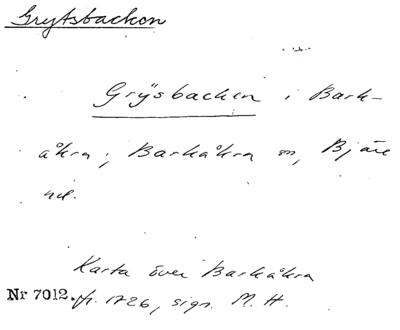 Grytsbackon
Grÿsbacken i Bark-
åkra; Barkåkra sn, Bjäre
hd.
Karta över Barkåkra
Nr 7012. fr. 1726, sign. M. H.